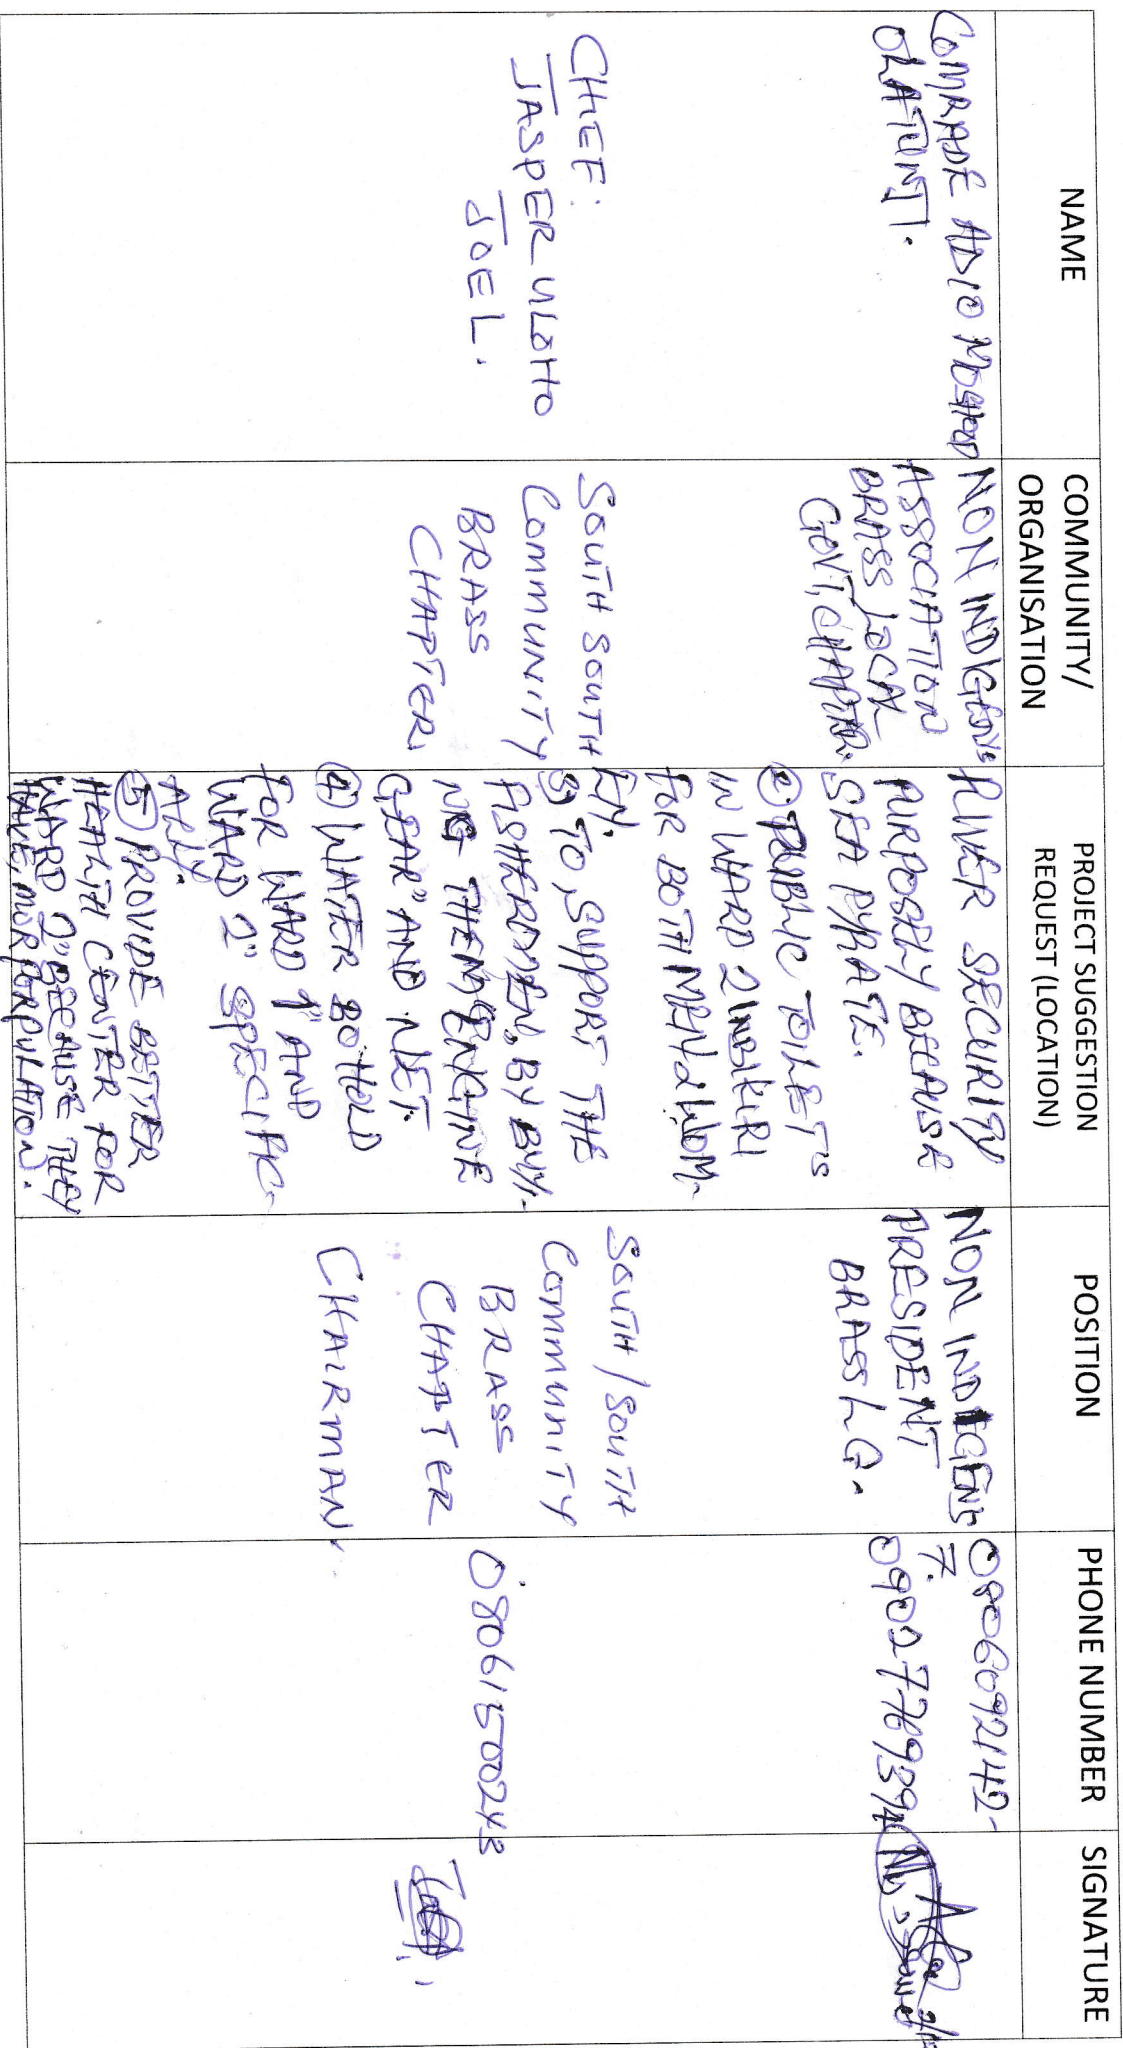 NAME
COMMUNITY/
ORGANISATION
PROJECT SUGGESTION
REQUEST (LOCATION)
POSITION
PHONE NUMBER
SIGNATURE
COMRADE ADIO MOSHOOD
OLATUNJI.
NON INDIGENS
ASSOCIATION
BRASS LOCAL
GOVT, CHAPTER.
RIVER SECURITY
PURPOSELY BECAUSE
SEA PYRATE.
② PUBLIC TOILETS
IN WARD 2 INBIKIRI
FOR BOTH MEN & WOM-
EN.
3) TO, SUPPORT THE
FISHEREMEN, BY BUYI-
NG THEM ENGINE
GEAR" AND NET.
④ WATER BOHOLD
FOR WARD 1" AND
WARD 2" SPECIFIC-
ALLY.
⑤ PROVIDE BETTER
HEALTH CENTER FOR
WARD 2" BECAUSE THEY
HAVE, MOR PORPULATION.
NON INDIGENS
PRESIDENT
BRASS LG.
0806092142-
7.
09027769394
CHIEF:
JASPER ULOHO
JOEL.
SOUTH SOUTH
COMMUNITY
BRASS
CHAPTER,
SOUTH/SOUTH
COMMUNITY
BRASS
CHAPTER
CHAIRMAN,
08061500243